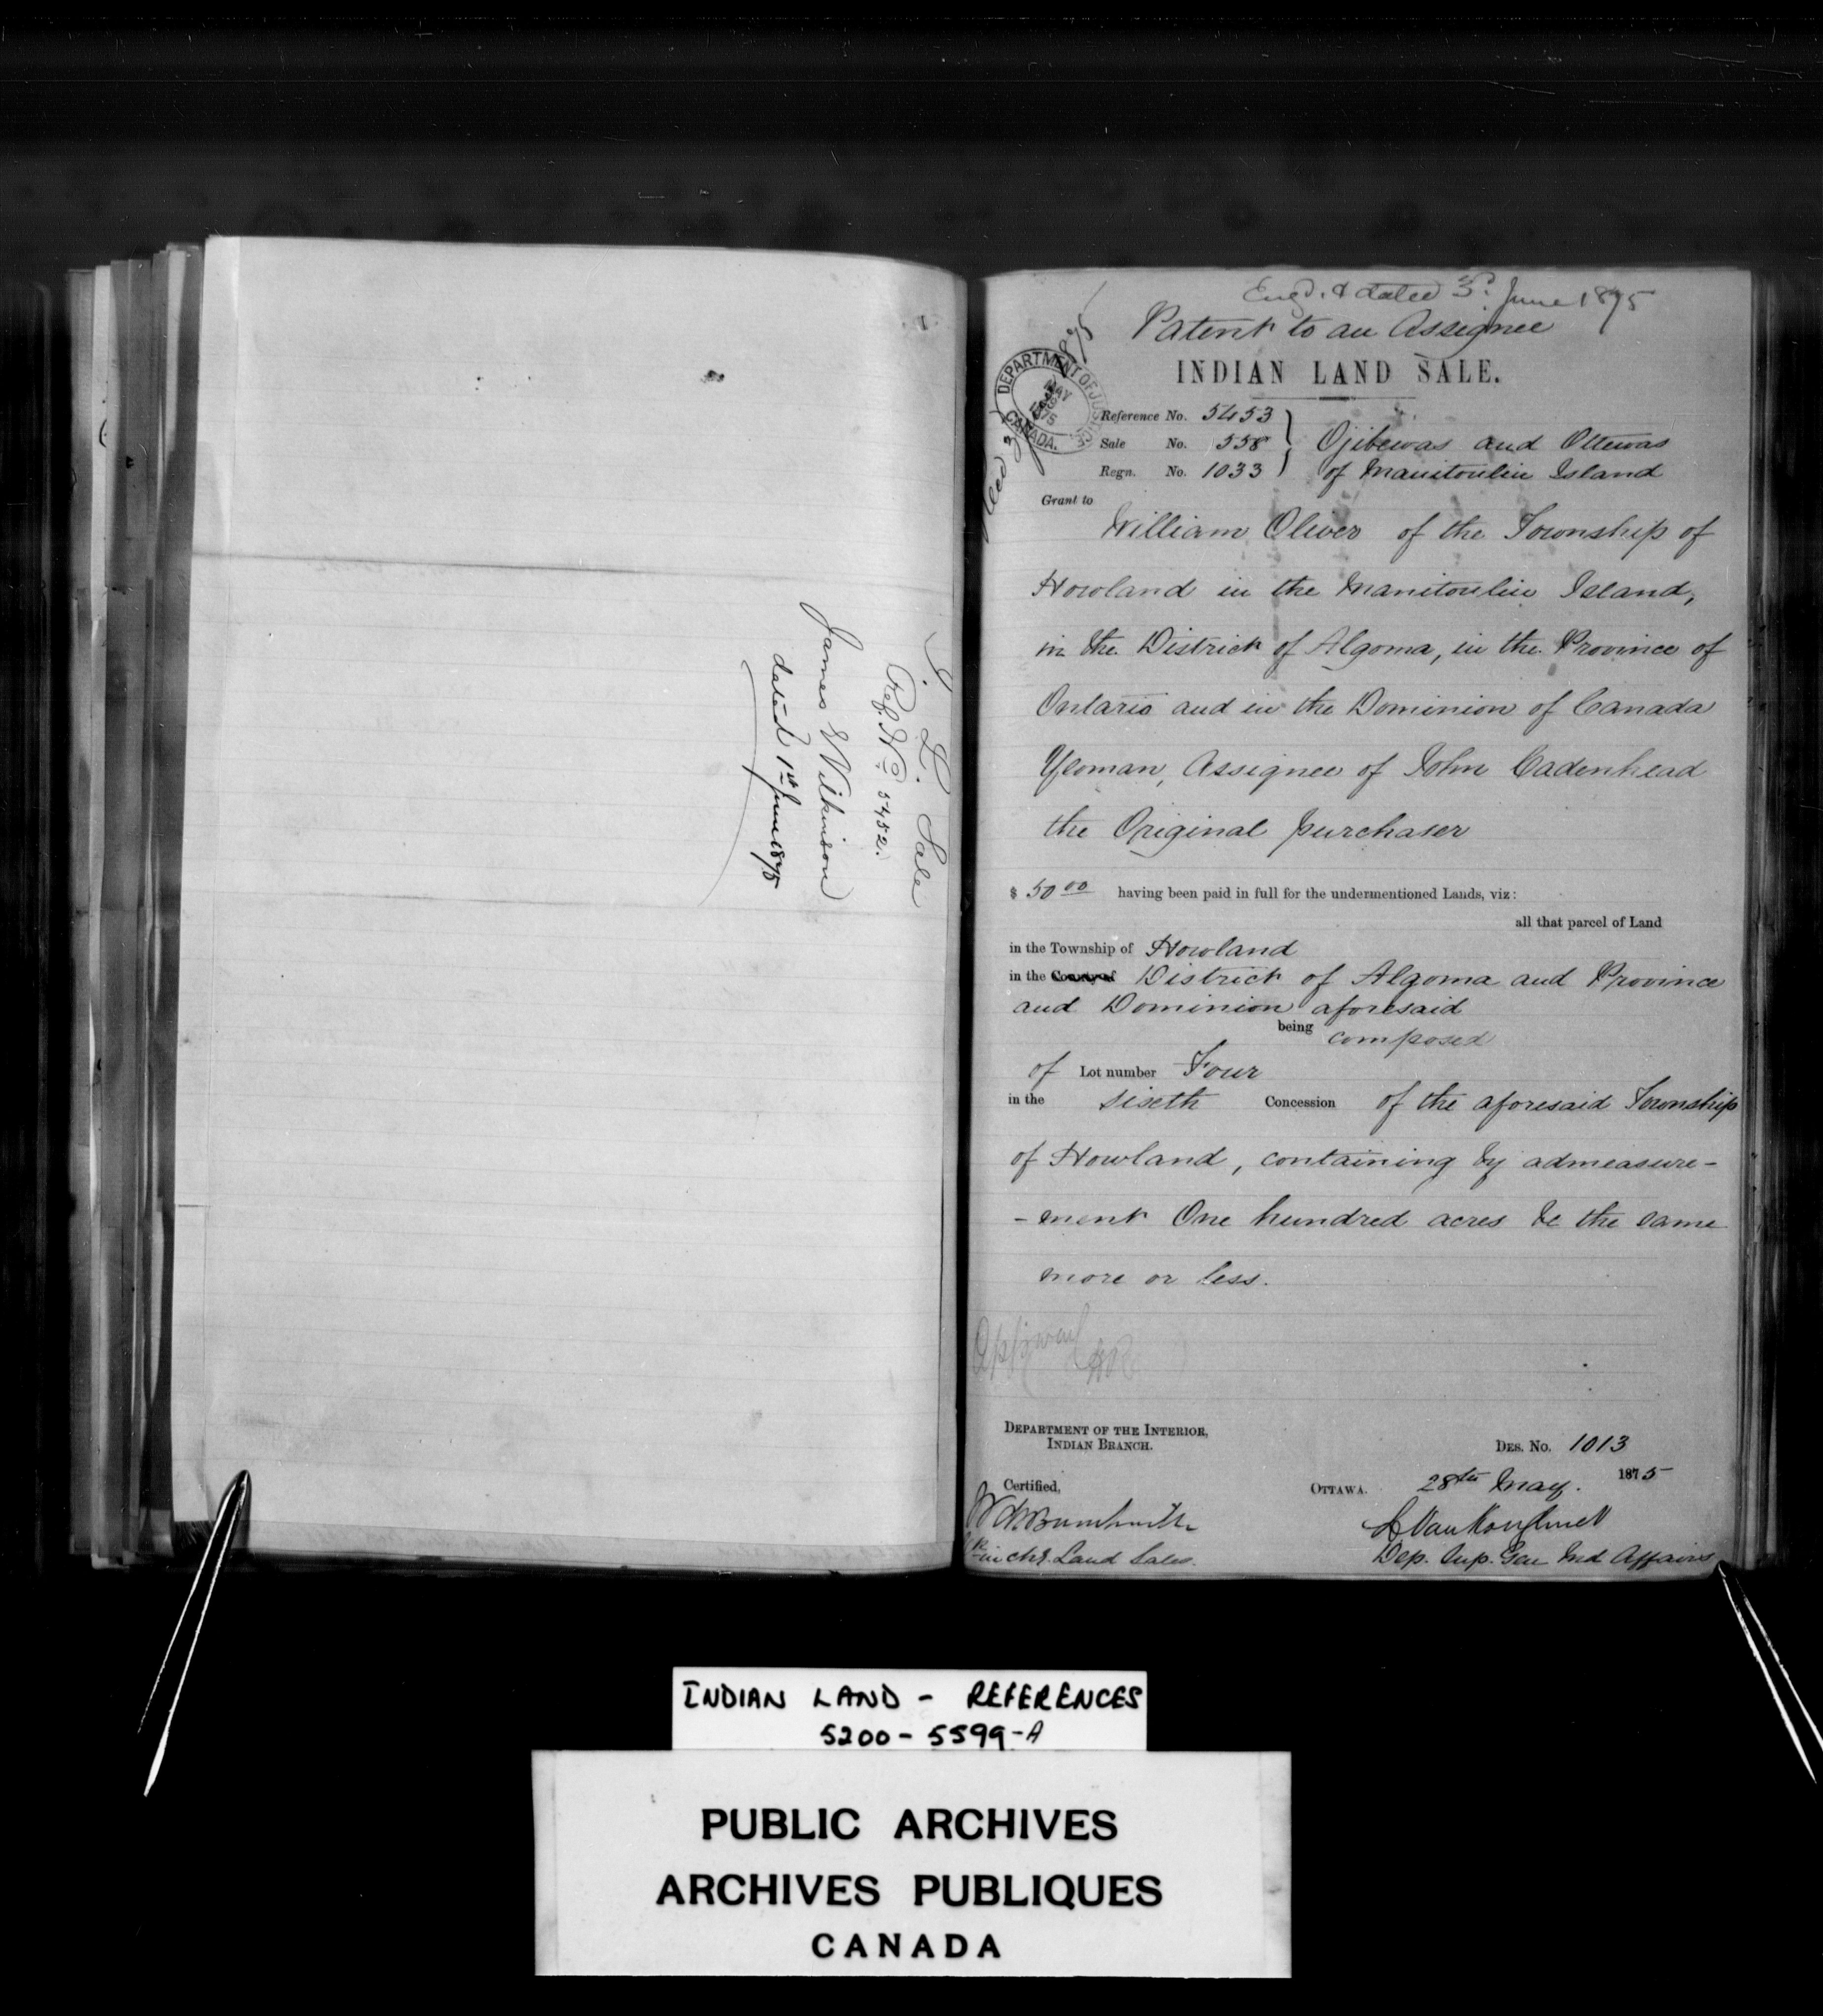 I. L. Sale
Ref. No. 5452.
James Wilkinson
dated 1st June 1875
Eng'd. & dated 3d. June 1875
Patent to an Assignee
INDIAN LAND SALE.
DEPARTMENT OF JUSTICE
MAY
CANADA.
Reference No. 5453
Sale No. 558
Regn. No. 1033
Ojibewas and Ottewas
of Manitoulin Island
Grant to
William Oliver of the Township of
Howland in the Manitoulin Island,
in the District of Algoma, in the Province of
Ontario and in the Dominion of Canada
Yeoman, Assignee of John Cadenhead
the Original purchaser
$ 50 00 having been paid in full for the undermentioned Lands, viz:
all that parcel of Land
in the Township of Howland
in the County of District of Algoma and Province
and Dominion aforesaid
being composed
of Lot number Four
in the sixth Concession of the aforesaid Township
of Howland, containing by admeasure-
-ment One hundred acres be the same
more or less.
Approved
DEPARTMENT OF THE INTERIOR,
INDIAN BRANCH.
DES. No. 1013
Certified,
OTTAWA. 28th May. 1875
L VanKoughnet
in chg. Land Sales.
Dep. Sup. Gen Ind Affairs
INDIAN LAND - REFERENCES
5200-5599-A
PUBLIC ARCHIVES
ARCHIVES PUBLIQUES
CANADA